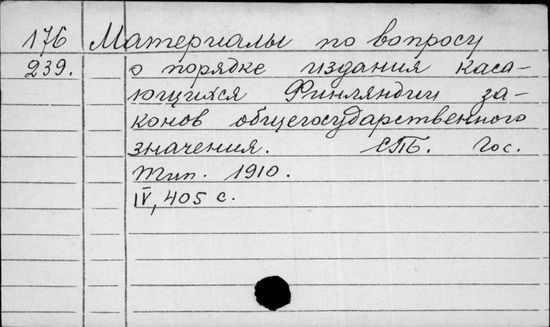 176 Материалы по вопросу
239. о порядке издания каса-
ющихся Финляндии за-
конов общегосударственного
значения. СПБ. Гос.
тип. 1910.
IV, 405 с.